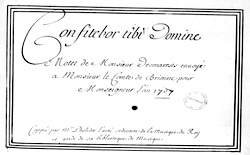 Confitebor tibi Domine
Motet de Monsieur Desmarests envoyé
a Monsieur le Comte de Brionne pour
Monseigneur l'an 1707
Coppié par Mr Philidor l'aîné ordinaire de la Musique du Roy
et garde de sa biblioteque de Musique